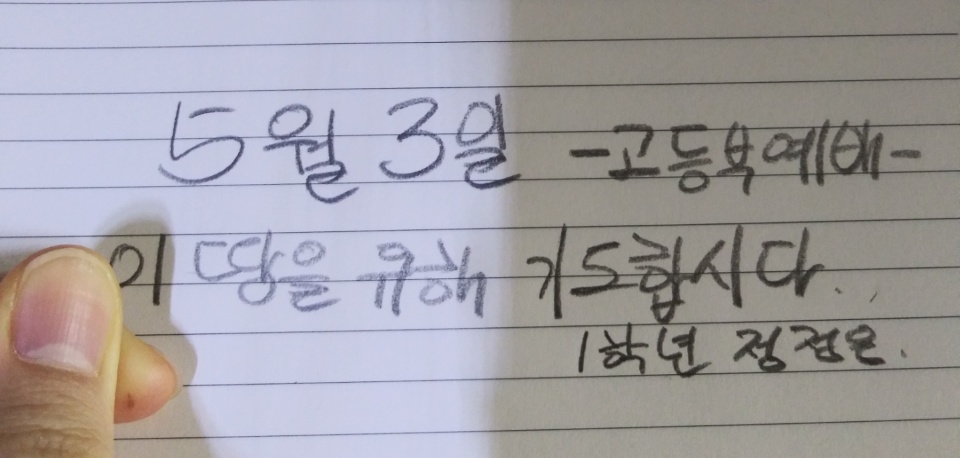 5월 3일 -고등부예배-
이 땅을 위해 기도합시다.
1학년 정정은.